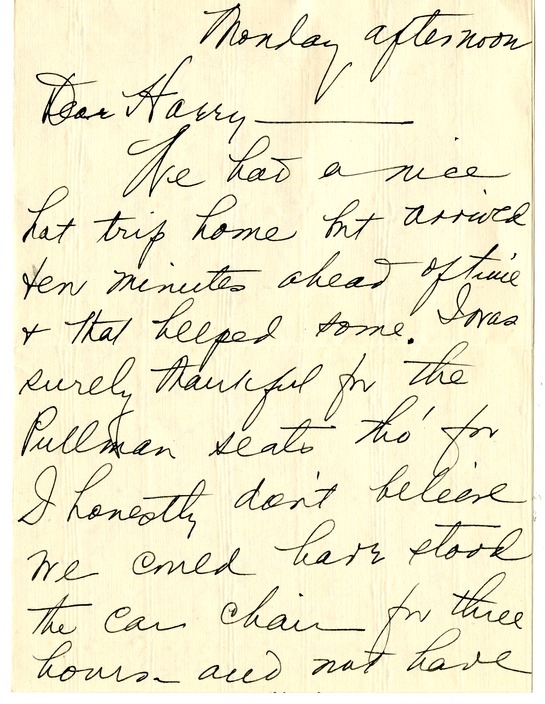 Monday afternoon
Dear Harry —
We had a nice
hot trip home but arrived
ten minutes ahead of time
& that helped some. I was
surely thankful for the
Pullman seats tho' for
I honestly don't believe
we could have stood
the car chair for three
hours — and not have